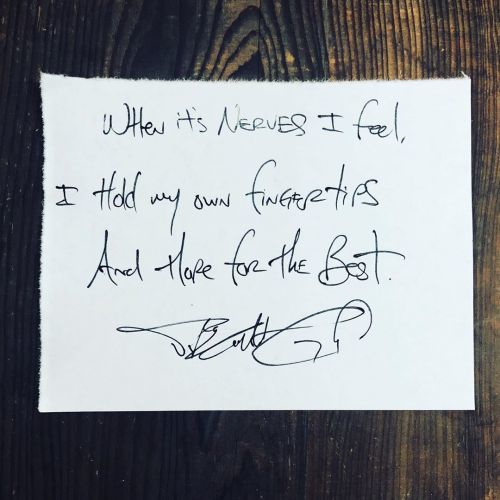 When it's Nerves I feel,
I Hold my own fingertips
And Hope for the Best.